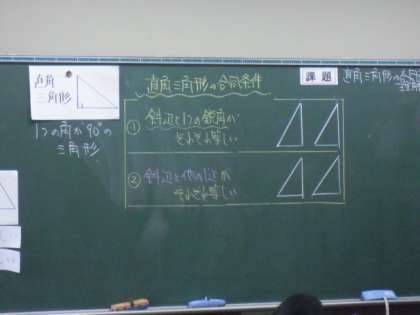 直角
三角形
1つの角が90°の
三角形
直角三角形の合同条件
① 斜辺と1つの鋭角が
それぞれ等しい
② 斜辺と他の1辺が
それぞれ等しい
課題
直角三角形の合同